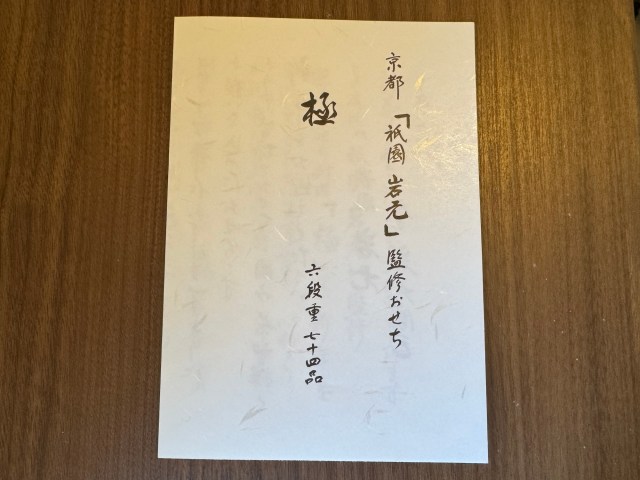 京都「祇園 岩元」監修おせち
極
六段重 七十四品